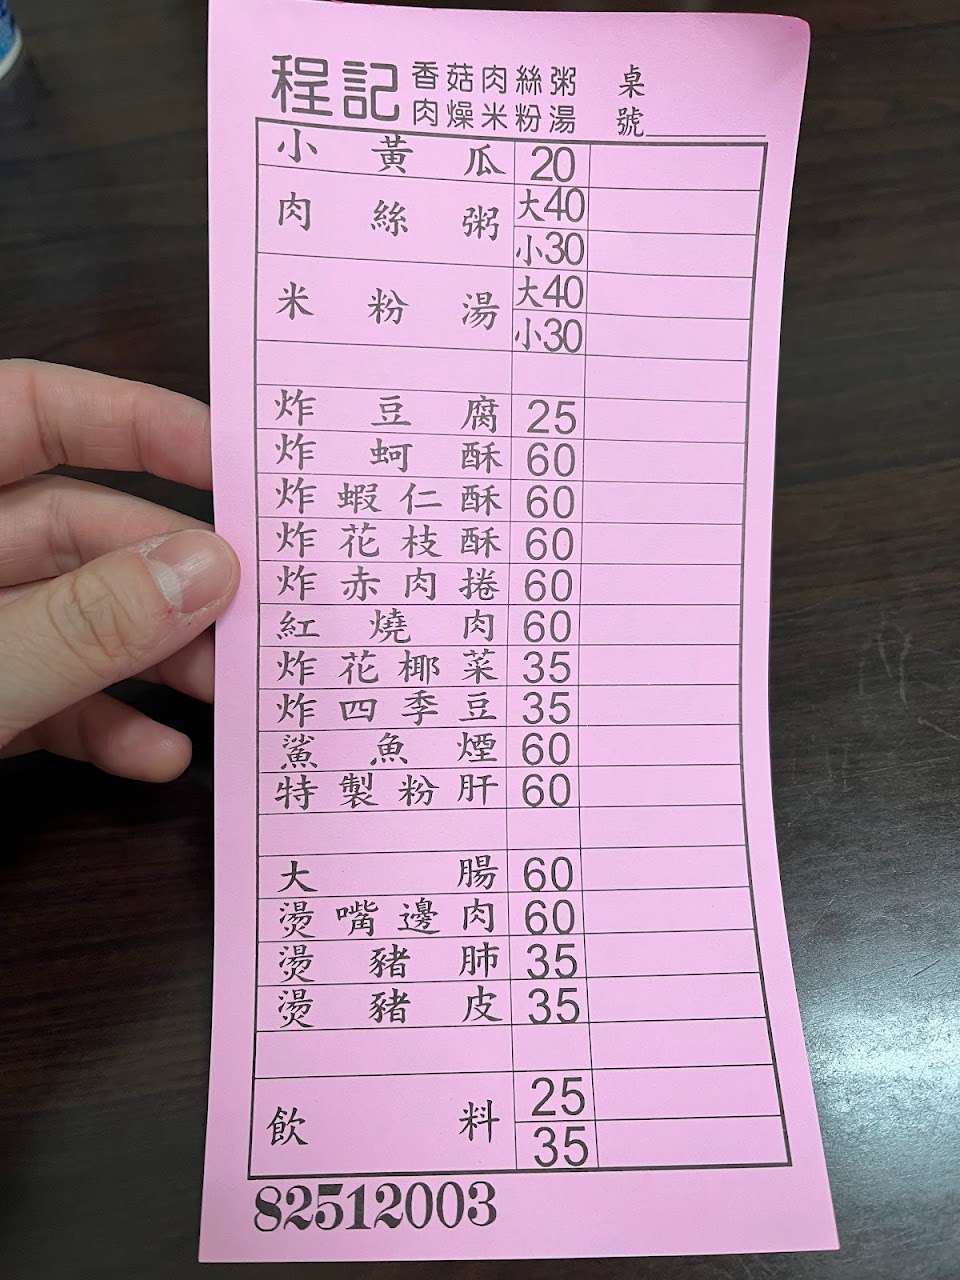 程記 香菇肉絲粥 桌
肉燥米粉湯 號
小黃瓜 20
肉絲粥 大40
小30
米粉湯 大40
小30
炸豆腐 25
炸蚵酥 60
炸蝦仁酥 60
炸花枝酥 60
炸赤肉捲 60
紅燒肉 60
炸花椰菜 35
炸四季豆 35
鯊魚煙 60
特製粉肝 60
大腸 60
燙嘴邊肉 60
燙豬肺 35
燙豬皮 35
飲料 25
35
82512003